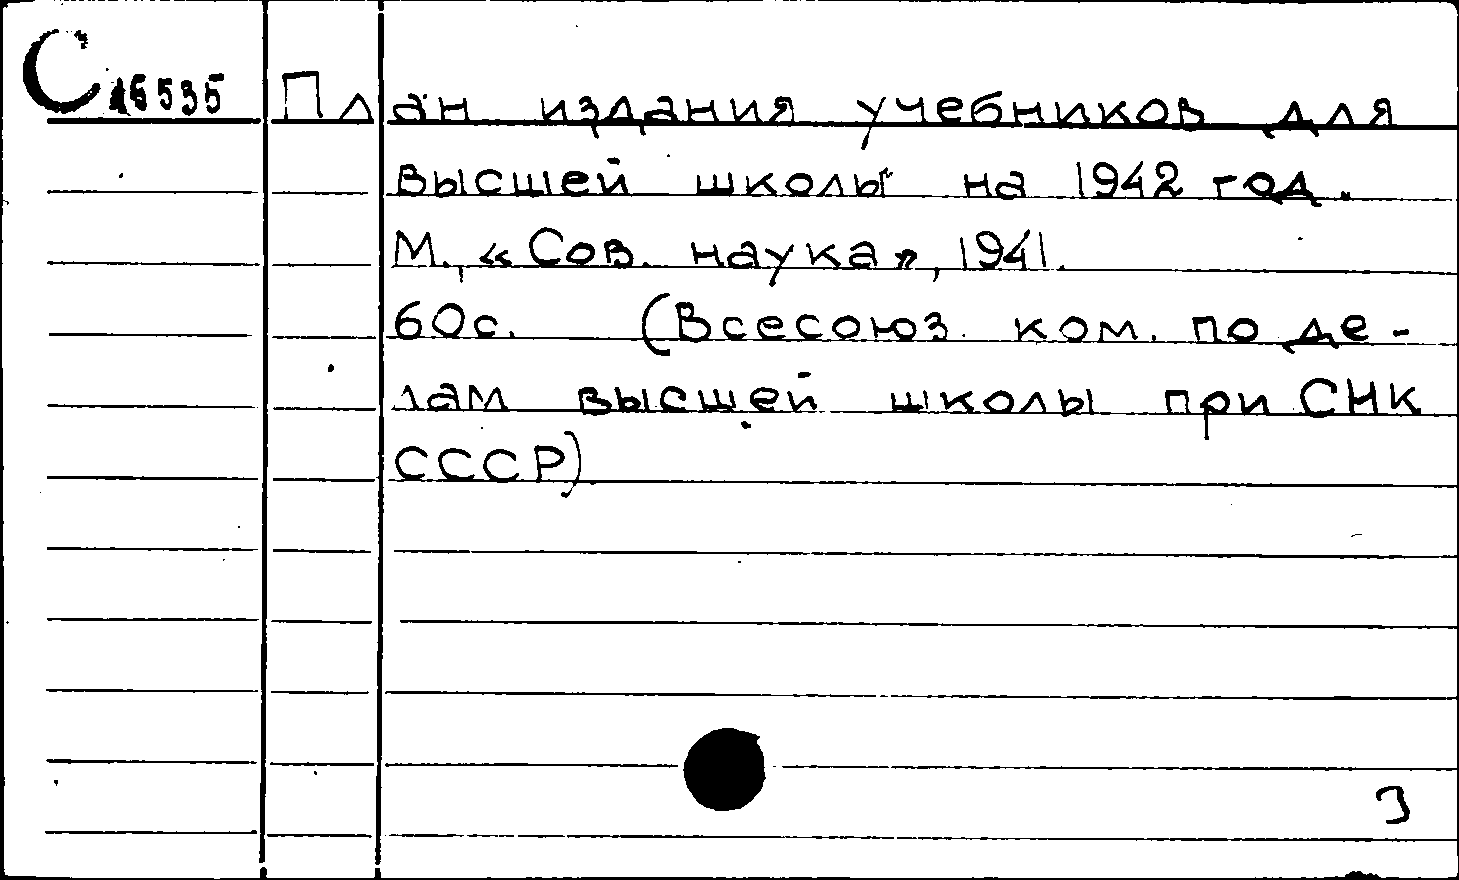 С 16535 План издания учебников для
высшей школы на 1942 год.
М., «Сов. наука», 1941.
60с. (Всесоюз. ком. по де-
лам высшей школы при СНК
СССР)